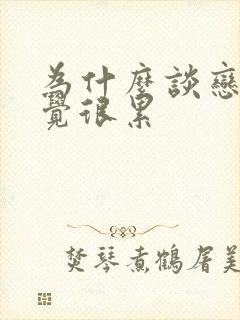 為什麼談戀
覺很累
焚琴煮鶴屠美